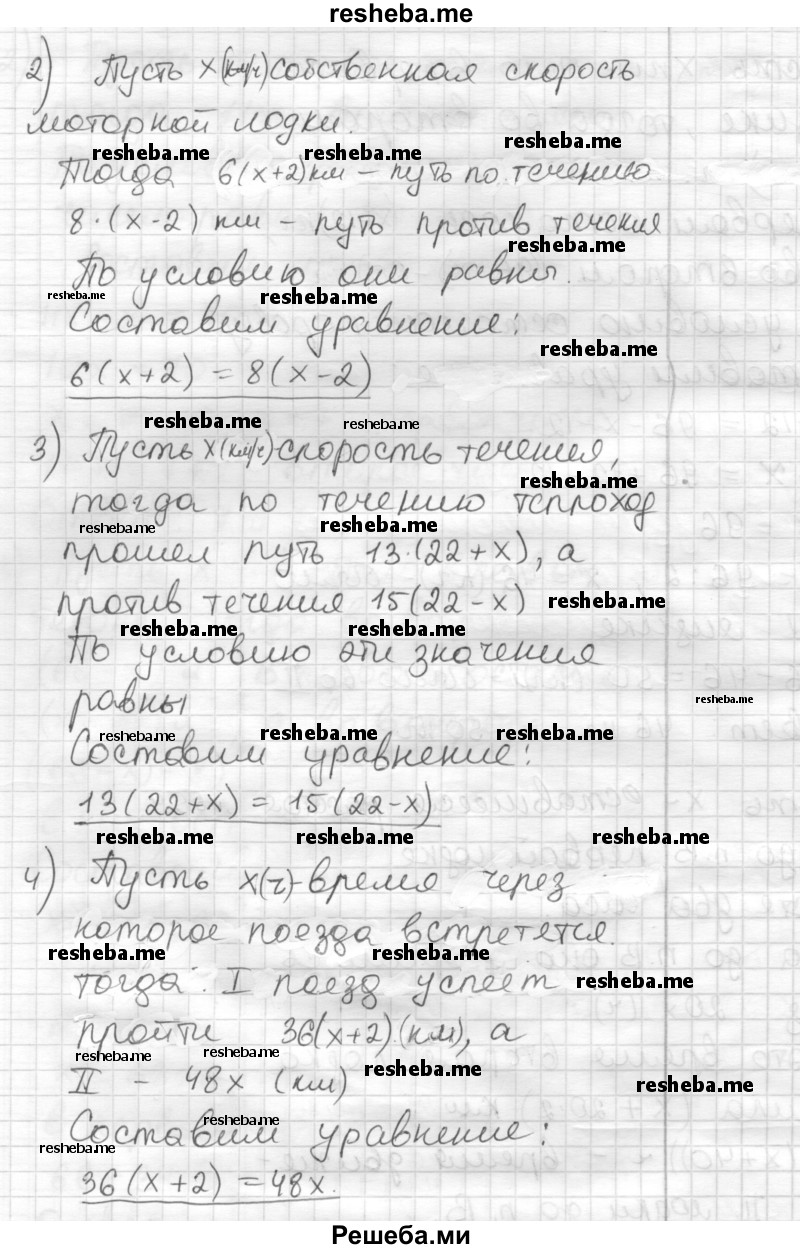 resheba.me
2) Пусть x(км/ч) собственная скорость
моторной лодки.
resheba.me
resheba.me resheba.me
Тогда 6(x+2) км – путь по течению
8·(x-2) км – путь против течения
resheba.me
По условию они равны.
resheba.me resheba.me
Составим уравнение:
resheba.me
6(x+2) = 8(x-2)
resheba.me resheba.me
3) Пусть x(км/ч)-скорость течения,
resheba.me
тогда по течению теплоход
resheba.me resheba.me
прошел путь 13·(22+x), а
против течения 15(22-x) resheba.me
resheba.me resheba.me
По условию эти значения
равны
resheba.me
resheba.me resheba.me resheba.me
Составим уравнение:
13(22+x) = 15(22-x)
resheba.me resheba.me resheba.me
4) Пусть x(ч)-время через
которое поезда встретятся.
resheba.me resheba.me
тогда: I поезд успеет resheba.me
пройти 36(x+2) (км), а
resheba.me resheba.me
II – 48x (км) resheba.me
resheba.me
resheba.me
Составим уравнение:
resheba.me
36(x+2) = 48x.
Решеба.ми